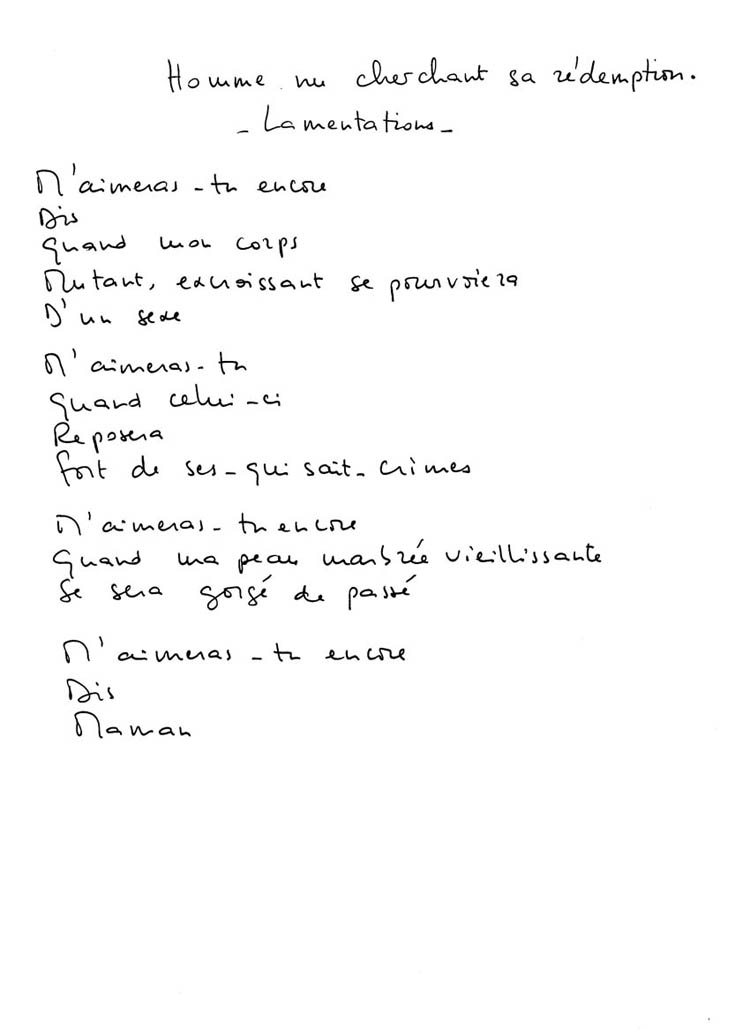 Homme nu cherchant sa rédemption.
- Lamentations -
M'aimeras-tu encore
Dis
Quand mon corps
Mutant, excroissant se pourvoiera
D'un sexe
M'aimeras-tu
Quand celui-ci
Reposera
Fort de ses-qui sait-crimes
M'aimeras-tu encore
Quand ma peau marbrée vieillissante
Se sera gorgé de passé
M'aimeras-tu encore
Dis
Maman